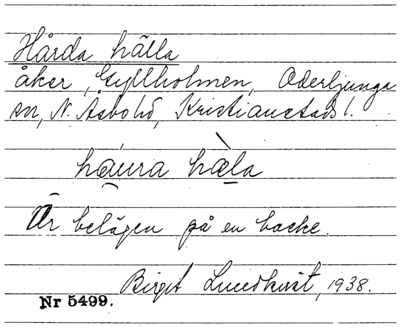 Hårda hälla
åker, Gyllholmen, Oderljunga
sn, N. Åsbo hd, Kristianstads l.
håura hàla
Är belägen på en backe.
Birgit Lundkvist, 1938.
Nr 5499.